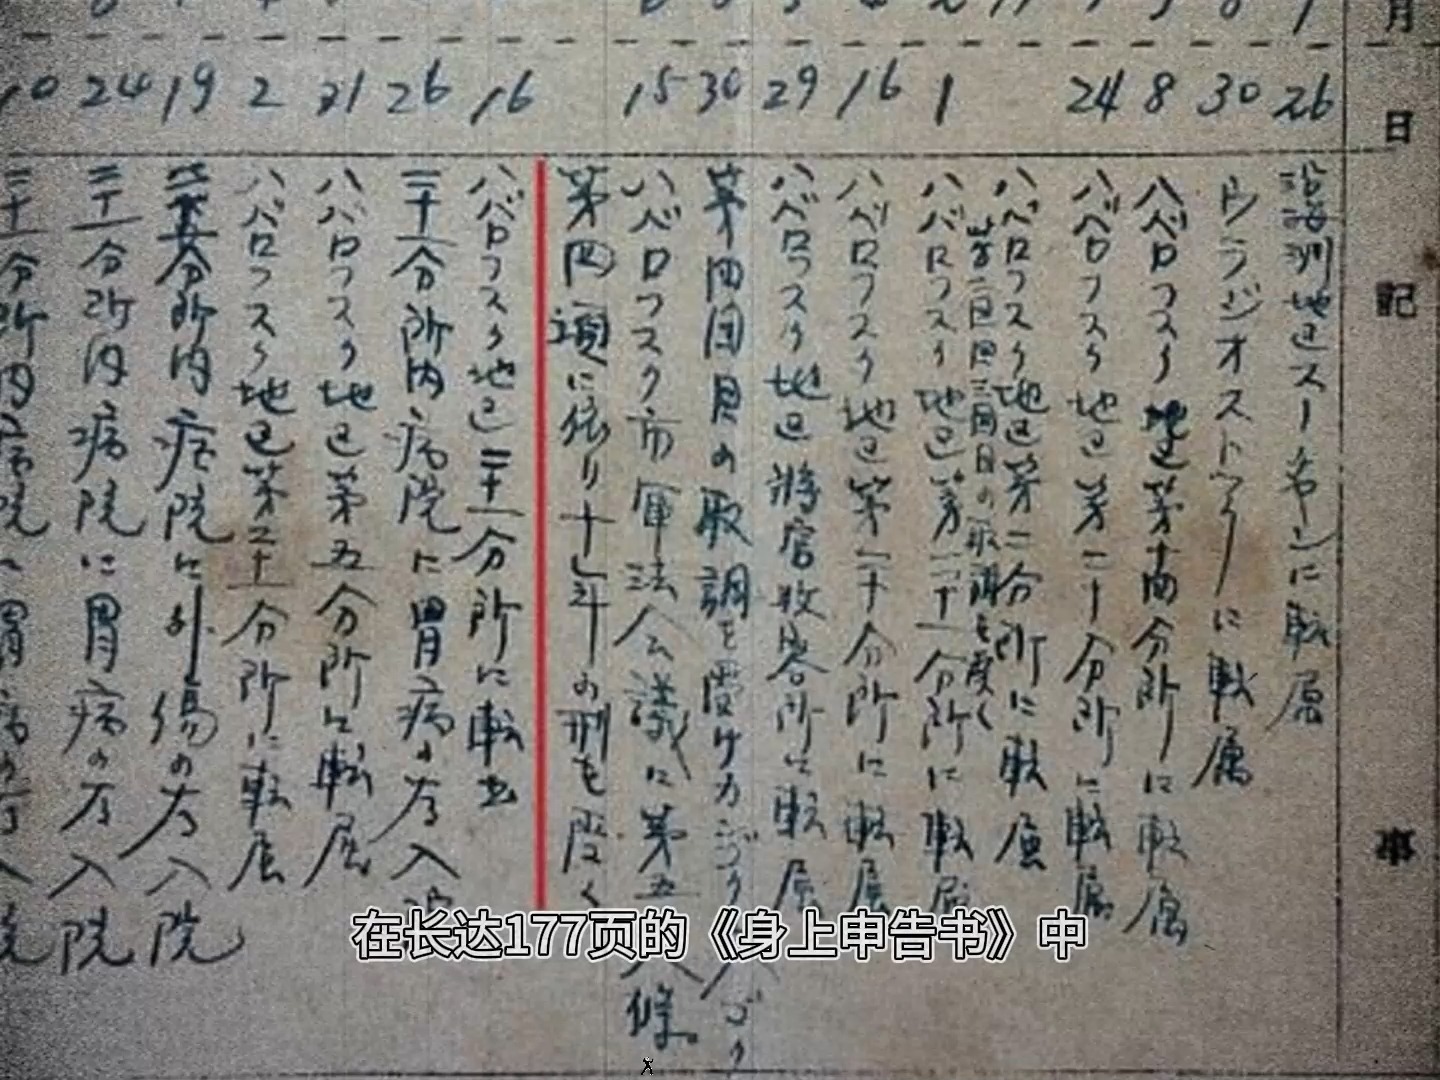 月
日
記
事
26
30
8
24
1
16
29
30
15
16
26
21
2
19
24
10
沿海洲地区スーチャンに転属
ウラジオストックに転属
ハバロフスク地区第十四分所に転属
ハバロフスク地区第二十分所に転属
ハバロフスク地区第二分所に転属
第二回目三回目の取調を受く
ハバロフスク地区第二十一分所に転属
ハバロフスク地区第二十分所に転属
ハバロフスク地区将官収容所に転属
第四回目の取調を受け
ハバロフスク市軍法会議に第五十八條
第四項に依り十七年の刑を受く
ハバロフスク地区二十一分所に転出
二十一分所内病院に胃病の为入院
ハバロフスク地区第五分所に転属
ハバロフスク地区第二十一分所に転属
分所内病院に外傷の为入院
二十一分所内病院に胃病の为入院
二十一分所内病院
在长达177页的《身上申告书》中